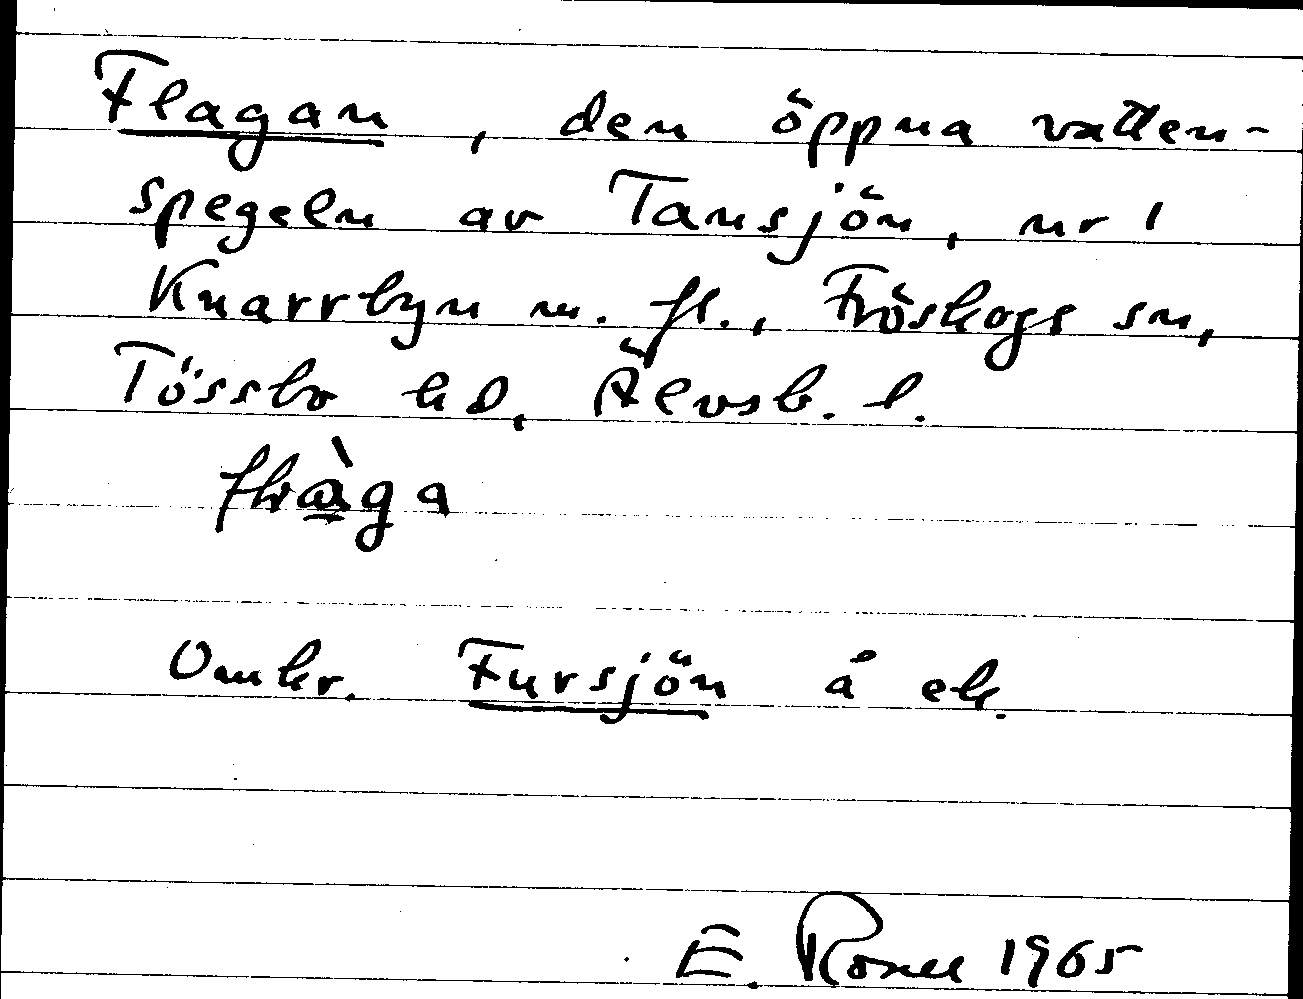 Flagan, den öppna vatten-
spegeln av Tansjön, nr 1
Knarrbyn m. fl., Fröskogs sn,
Tössbo hd, Älvsb. l.
Omkr. Fursjön å ek.
E. Rosell 1965